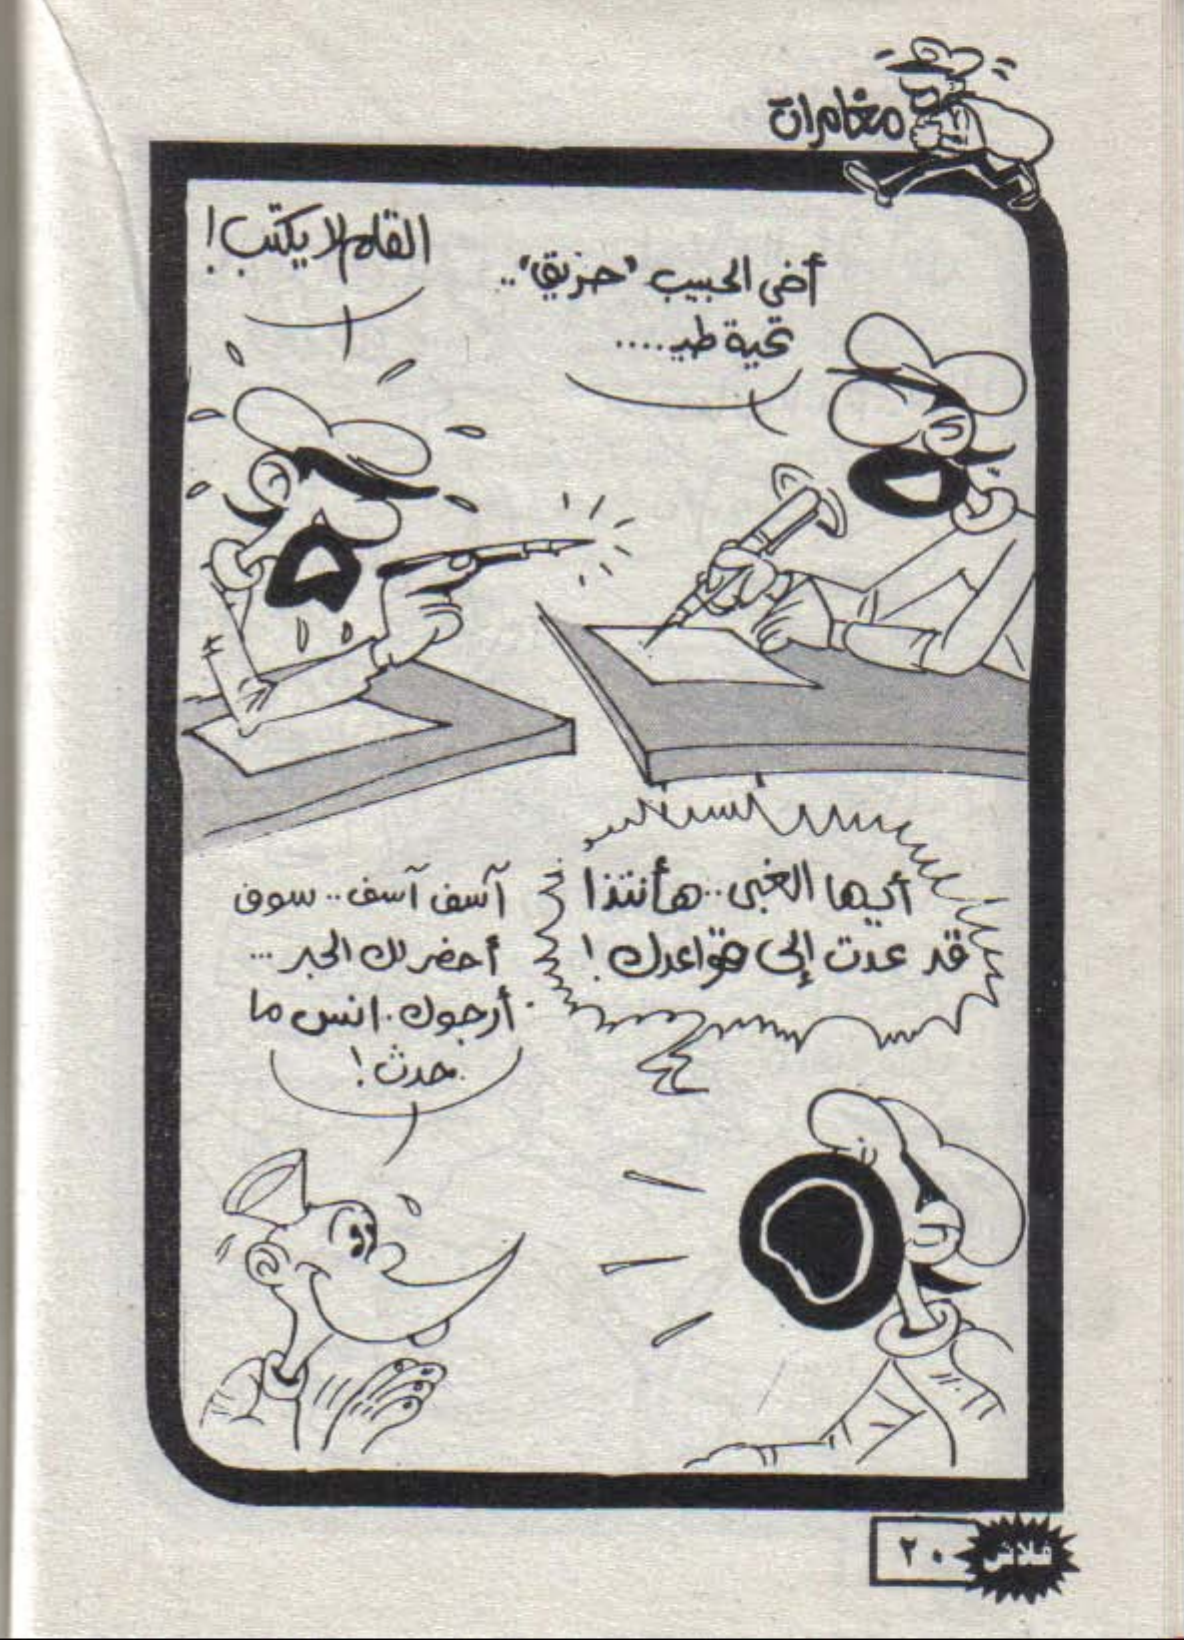 مغامرات
أخى الحبيب "حزيق"..
تحية طيـ....
القلم لا يكتب!
أيها الغبى.. هأنتذا
قد عدت إلى قواعدك!
آسف آسف.. سوف
أحضر لك الحبر...
أرجوك. انس ما
حدث!
فلاش
٢٠